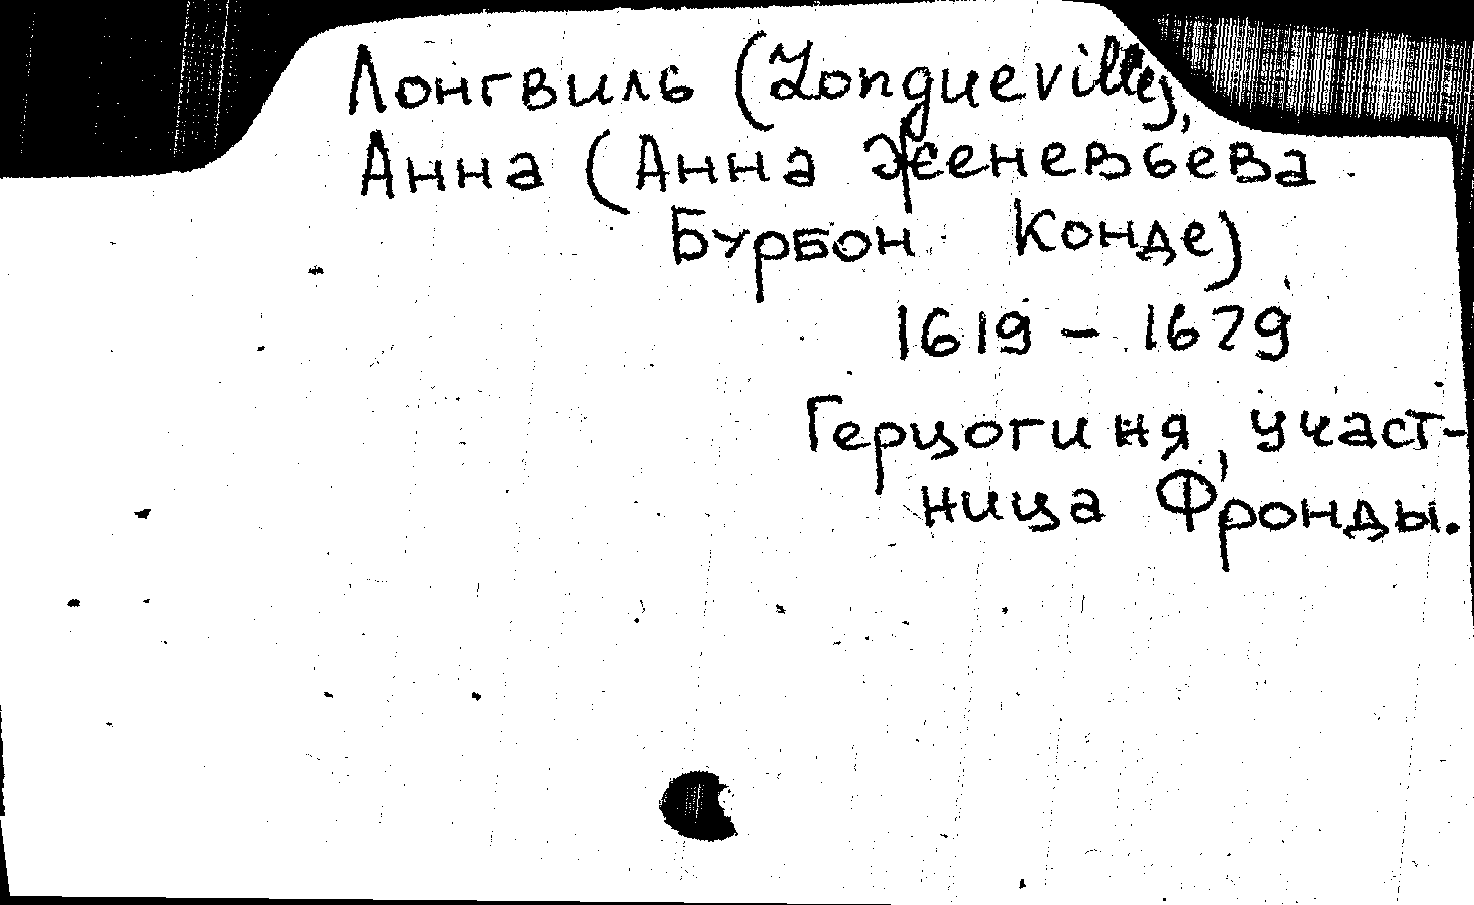 Лонгвиль (Longueville),
Анна (Анна Женевьева
Бурбон Конде)
1619 - 1679
Герцогиня, участ-
ница Фронды.